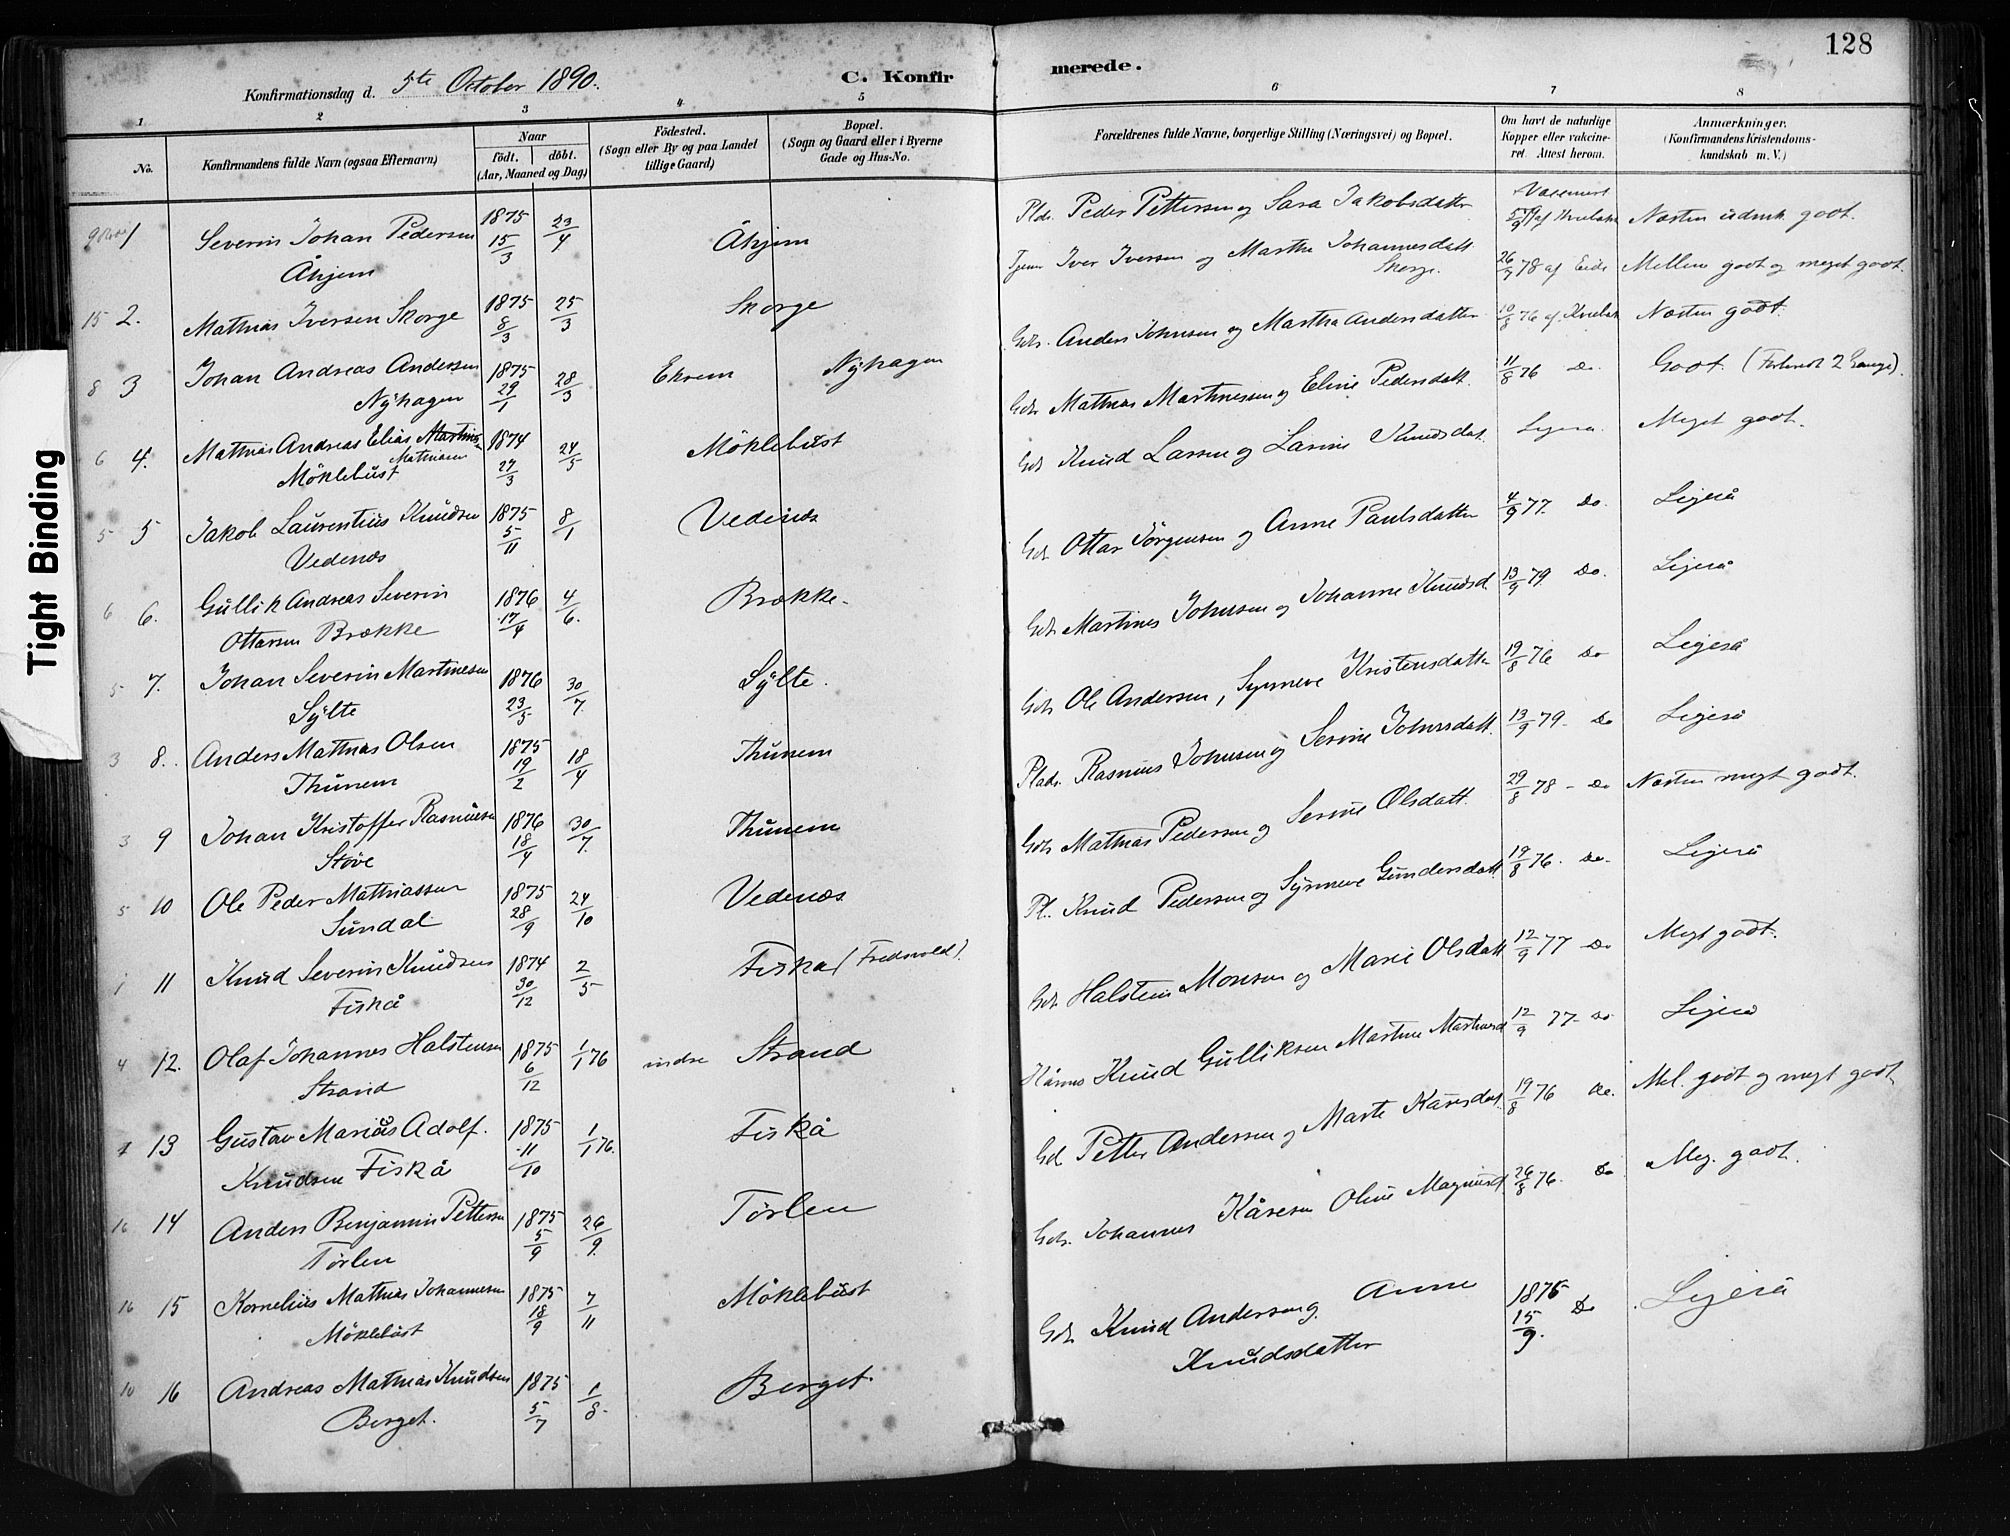 128
Konfirmationsdag d. 5te October 1890.
C. Konfir merede.
1 2 3 4 5 6 7 8
No.
Konfirmandens fulde Navn (ogsaa Efternavn)
Naar
födt. döbt.
(Aar, Maaned og Dag)
Födested.
(Sogn eller By og paa Landet
tillige Gaard)
Bopæl.
(Sogn og Gaard eller i Byerne
Gade og Hus-No.
Forældrenes fulde Navne, borgerlige Stilling (Næringsvei) og Bopæl.
Om havt de naturlige
Kopper eller vakcine-
ret. Attest herom.
Anmærkninger.
(Konfirmandens Kristendoms-
kundskab m. V.)
Tight Binding
1 Severin Johan Pedersen 1875 15/3 23/4 Åhjem
Åhjem
Plds. Peder Pettersen og Sara Jakobsdatter Næsten udmk. godt.
15 2. Mathias Iversen Skorge 1875 8/3 25/3 Skorge
Iver Iversen og Marthe Johannesdatt. 26/9 78 af Eide Mellem godt og meget godt.
Skorge.
8 3 Johan Andreas Andersen 1875 29/1 28/3 Ekrem Nÿhagen
Nÿhagen
Gdr. Anders Johnsen og Martha Andersdatter 10/8 76 Næsten godt.
6 4. Mathias Andreas Elias Martins 1874 27/3 24/5 Möklebust
Mathiasen
Möklebust
Gdr Mathias Martinussen og Eline Pedersdatt. 11/8 76 Do. Godt (Forberedt 2 Gange).
5 5 Jakob Laurentius Knudsen 1875 5/11 8/1 Vedenæs
Vedenæs
Gdr Knud Larsen og Larine Knudsdat. Ligesaa Meget godt.
6 6. Gullik Andreas Severin 1876 17/4 4/6 Brække.
Ottarsen Brække
Gdr Ottar Jörgensen og Anne Paulsdatter 4/9 77. Do. Ligeså
5 7. Johan Severin Martinesen 1876 23/5 30/7 Sÿlte.
Sÿlte
Gdr Martines Johnsen og Johanne Knudsd 13/9 79 Do. Ligeså
3 8. Anders Mathias Olsen 1875 19/2 18/4 Thunem
Thunem
Gdr Ole Andersen, Synneve Kristensdatter 19/8 76 Do Ligeså
3 9 Johan Kristoffer Rasmusen 1876 18/4 30/7. Thunem
Støve
Plads. Rasmus Johnsen og Serine Johnsdatt. 13/9 79. Do Ligeså
5 10 Ole Peder Mathiassen 1875 28/9 24/10 Vedenæs
Sundal
Gdr Mathias Pedersen og Serine Olsdatt. 29/8 78 - Do Næsten megt godt.
1 11 Knud Severin Knudsen 1874 30/12 2/5 Fiskaa (Fredsvold).
Fiskå
Pl. Knud Pedersen og Synneve Gundersdatt 19/8 76. Do. Ligeså
4 12. Olaf Johannes Halstensen 1875 6/12 1/1 76 indre Strand
Strand
Gdr Halstein Monsen og Marie Olsdatt 12/9 77 - Do Megt godt.
13 Gustav Marius Adolf. 1875 11/10 1/1 76. Fiskå
Knudsen Fiskå
Knud Gulliksen Martine Martinusd 12/9 77 - Do Ligeså
16 14 Anders Benjamin Pettersen 1875 5/9 26/9. Tørlen
Tørlen
Gd Petter Andersen og Marte Kåresdat. 19/8 76 Do. Mel. godt og megt godt
16 15 Kornelius Mathias Johannesen 1875 18/9 7/11 Möklebust
Möklebust
Gdr. Johannes Kåresen Oline Magnusd. 26/8 76. Do Meg. godt.
10 16 Andreas Mathias Knudsen 1875 5/7 1/8. Berget.
Berget.
Gdr Knud Andersen og. Anne 1876 15/9. Do Ligeså
Knudsdatter